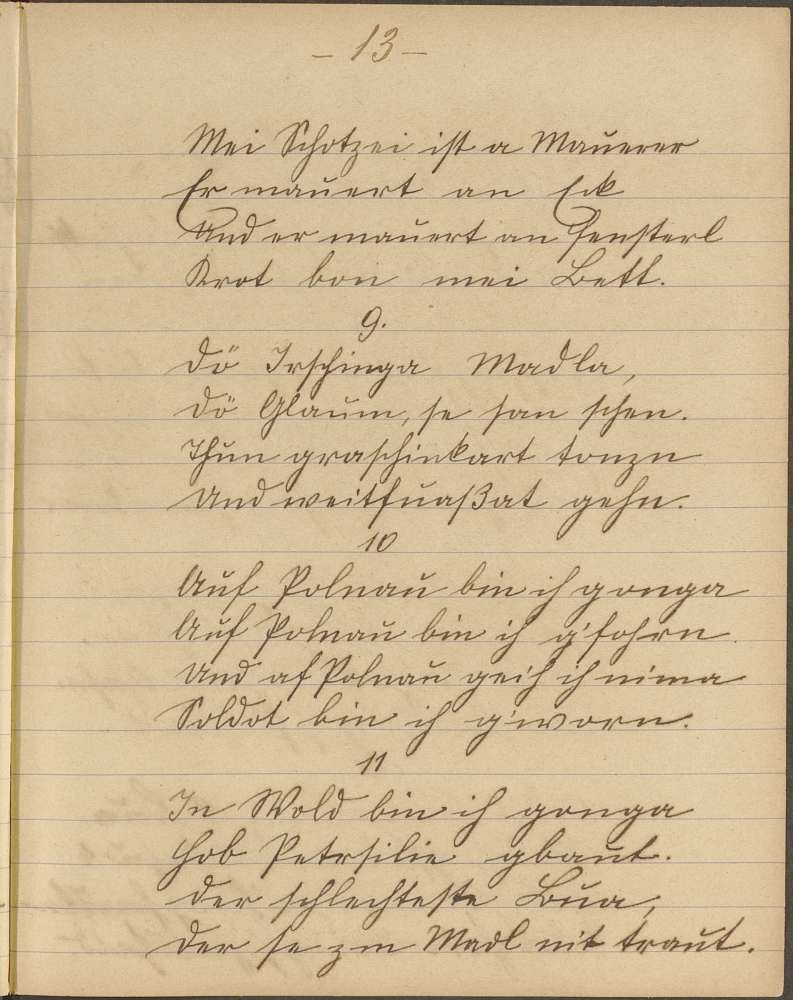 – 13 –
Mei Schotzei ist a Mauerer
Er mauert an Eck
Und er mauert an Fensterl
Krot bon mei Bett.
9.
Dö Irschinga Madla,
Dö Glaum, se san schen.
Thun graschinkart tonzn
Und weitfuaßat gehn.
10
Auf Polnau bin ich gonga
Auf Polnau bin ich g'fohrn
Und af Polnau geih ich nima
Soldot bin ich g'worn.
11
In Wold bin ich gonga
Hob Petrsilie gbaut.
Der schlechteste Bua,
Der se zm Madl nit traut.